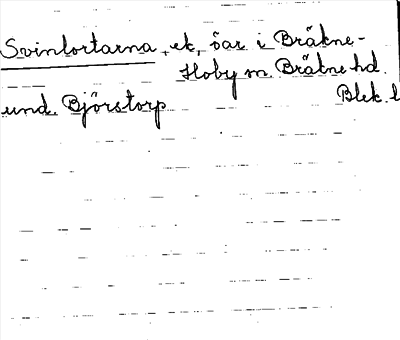 Svinlortarna, ek, öar i Bräkne-
Hoby sn. Bräkne hd.
und. Björstorp Blek. l